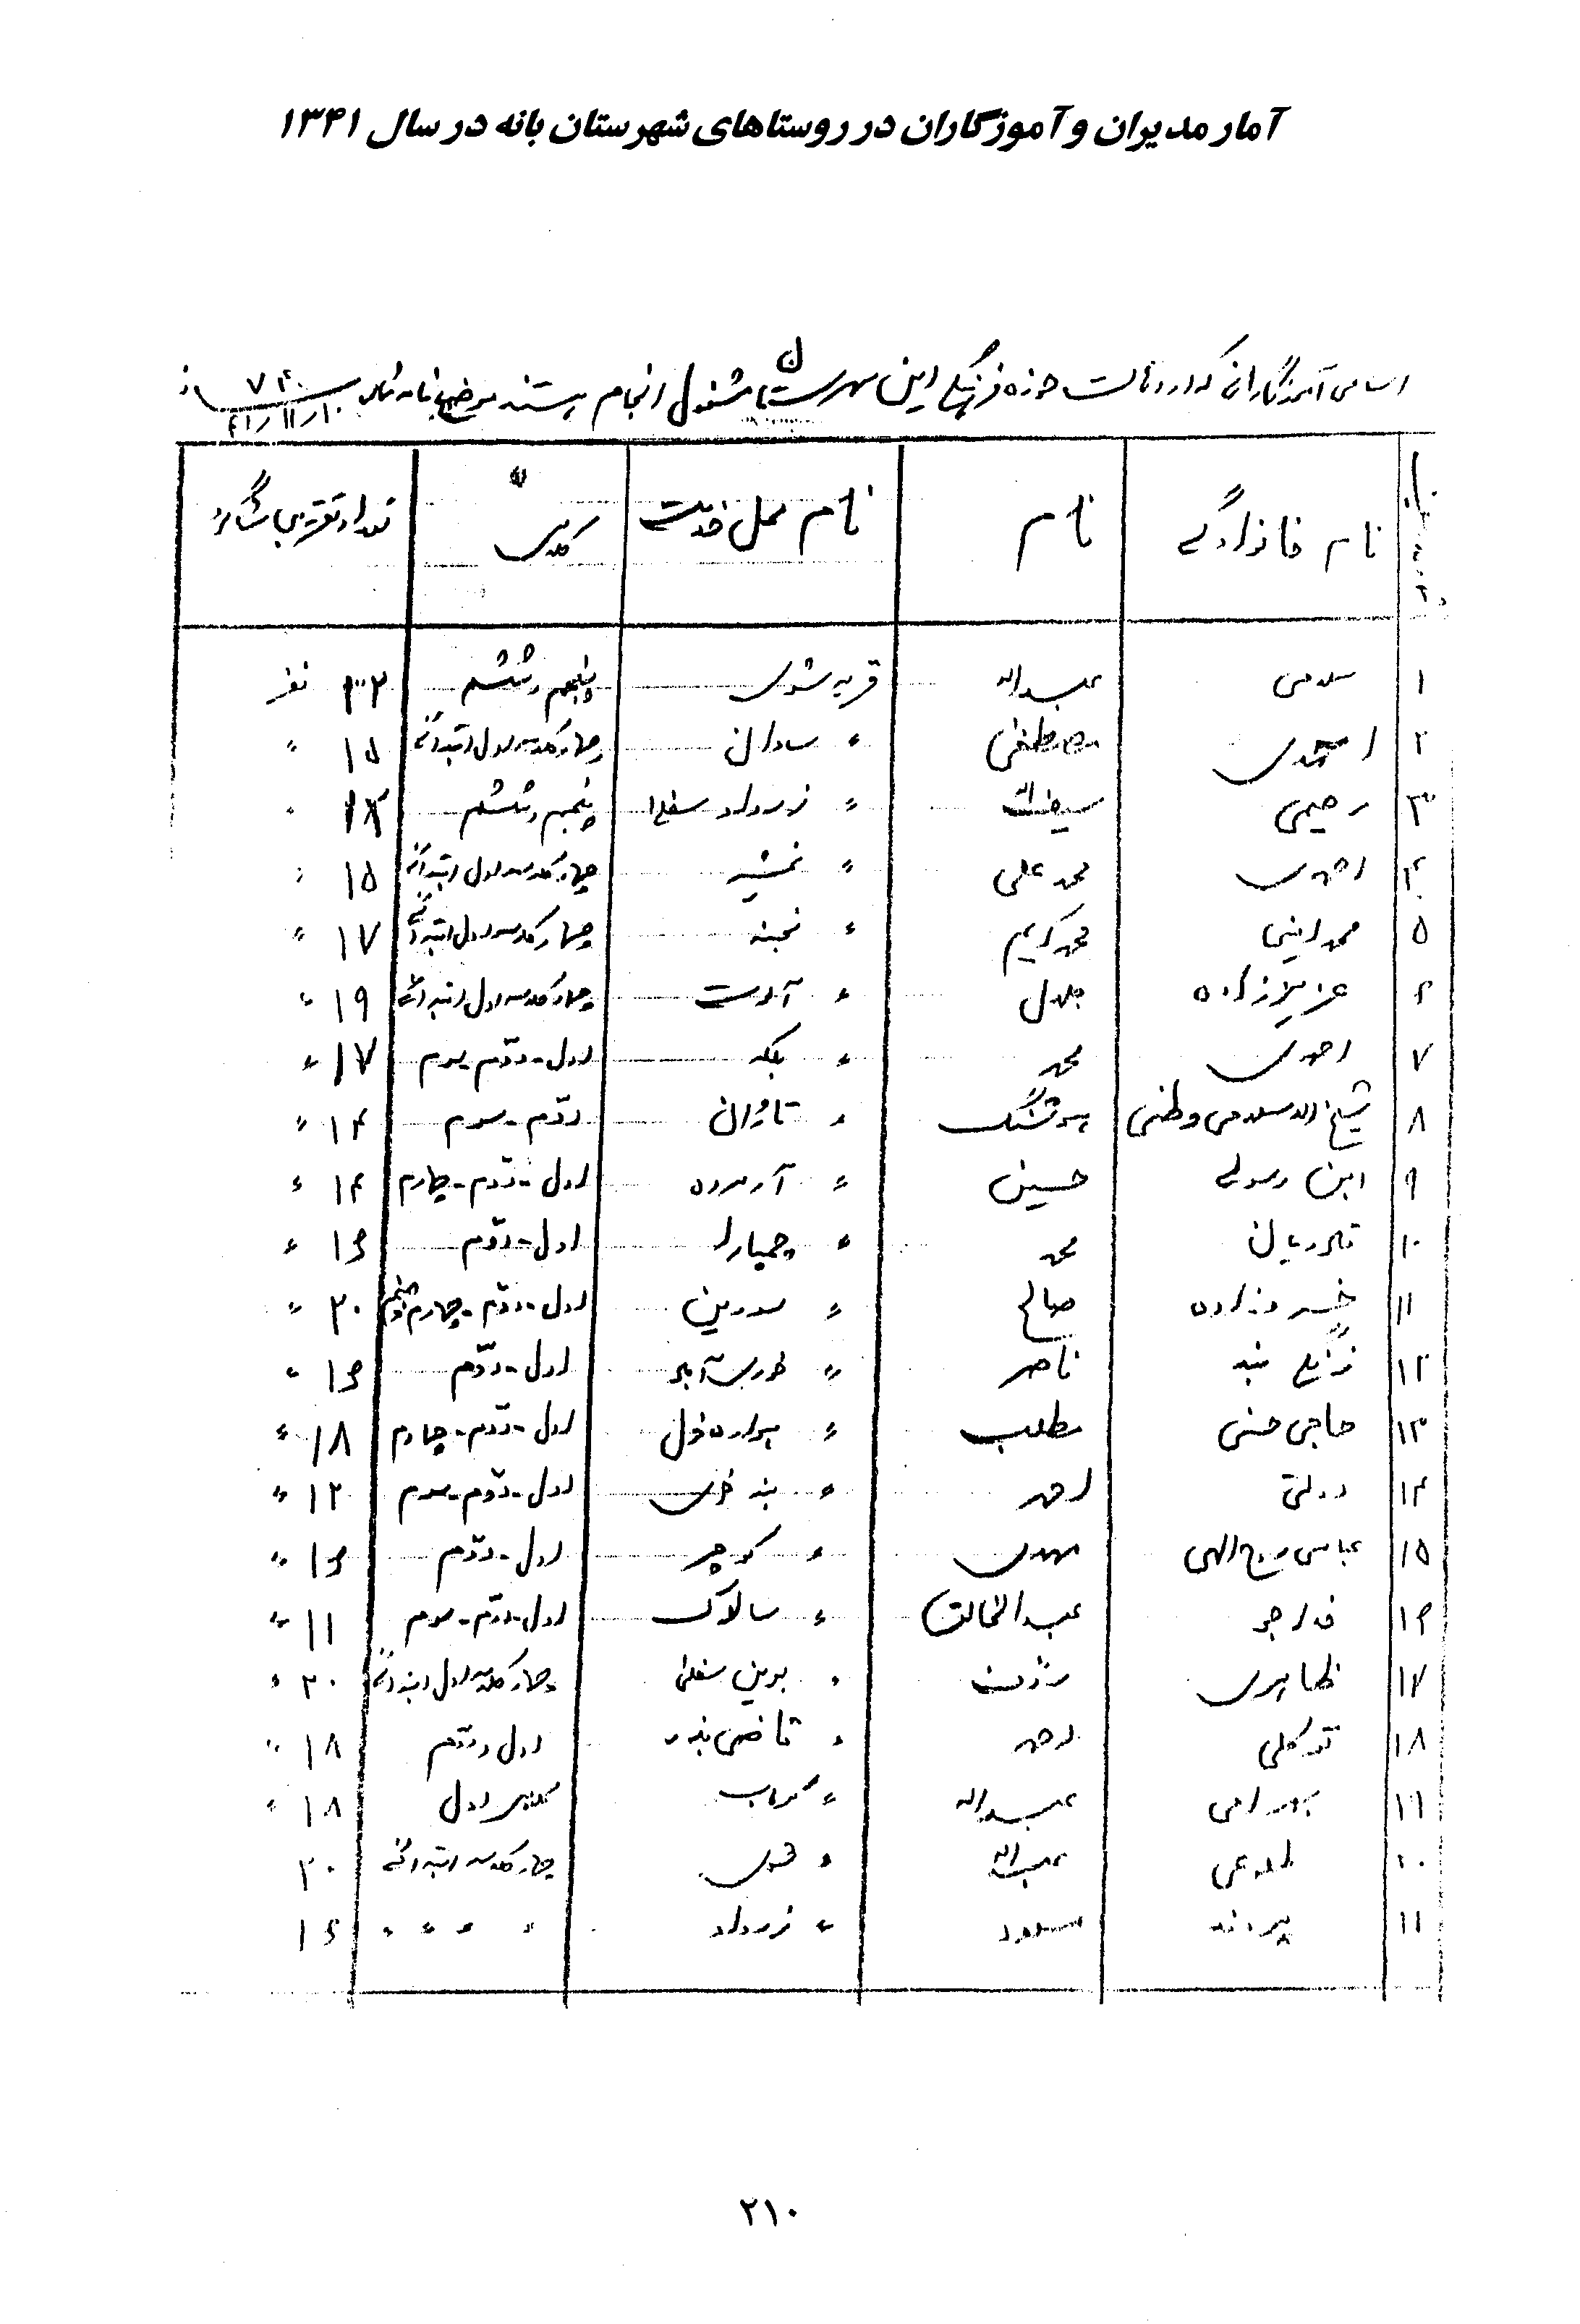 آمار مدیران و آموزگاران در روستاهای شهرستان بانه در سال ۱۳۴۱
اسامی آموزگارانی که در دهات حوزه فرهنگی این شهرستان مشغول انجام هستند موضوع نامه شماره ۷۴۰
۴۱/۱۱/۱۰
نام خانوادگی نام نام محل خدمت کلاس تعداد تقریبی شاگرد
۱ سلامی عبداله قریه شوی پنجم و ششم نفر
۲ احمدی مصطفی " ساوان چهار کلاس اول ابتدائی ۱۵ "
۳ رحیمی سیف اله " زرواو سفلا پنجم و ششم "
۴ احمدی محمد علی " نمشیر چهار کلاس اول ابتدائی ۱۵ "
۵ محمد امینی محمد کریم " نجنه چهار کلاس اول ابتدائی ۱۷ "
۶ عزیززاده جلال " آلوت چهار کلاس اول ابتدائی ۱۹ "
۷ احمدی محمد " بلکه اول - دوم سوم ۱۷ "
۸ شیخ الاسلامی وطنی هوشنگ " تاژان دوم - سوم ۱۴ "
۹ ابن رسولی حسین " آرمرده اول - دوم - چهارم ۱۴ "
۱۰ قادریان محمد " چمپاراو اول - دوم ۱۶ "
۱۱ خسروزاده صالح " سورین اول - دوم - چهارم و پنجم ۲۰ "
۱۲ ناصر " اول - دوم ۱۶ "
۱۳ حاجی حسنی مطلب " اول - دوم - چهارم ۱۸ "
۱۴ دولتی احمد " بنه خوی اول - دوم - سوم ۱۲ "
۱۵ عباسی مهدی " کوچر اول - دوم ۱۶ "
۱۶ عبدالخالق " سالوک اول - دوم - سوم ۱۱ "
۱۷ طاهری رؤف " بوین سفلی چهار کلاس اول ابتدائی ۲۰ "
۱۸ توکلی احمد " اول و دوم ۱۸ "
۱۹ بهرامی عبداله " کلاس اول ۱۸ "
۲۰ طلوعی عبداله " چهار کلاس ابتدائی ۲۰
مسعود " زرواو " " " " ۱۶
۲۱۰